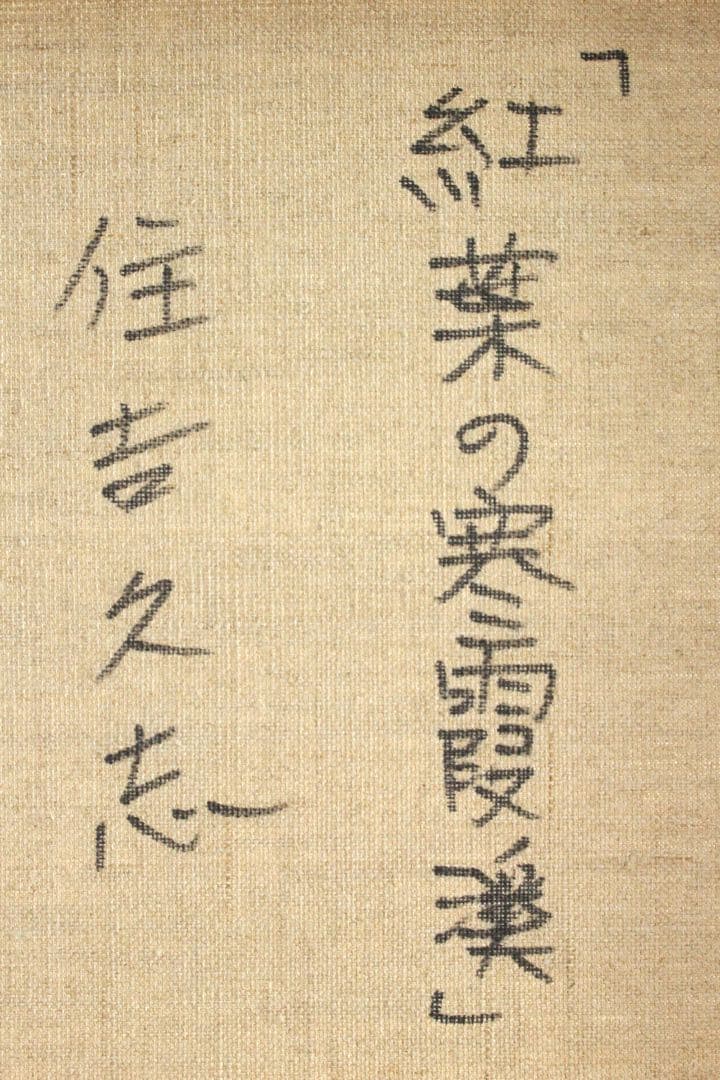 「紅葉の寒霞渓」
住吉久志